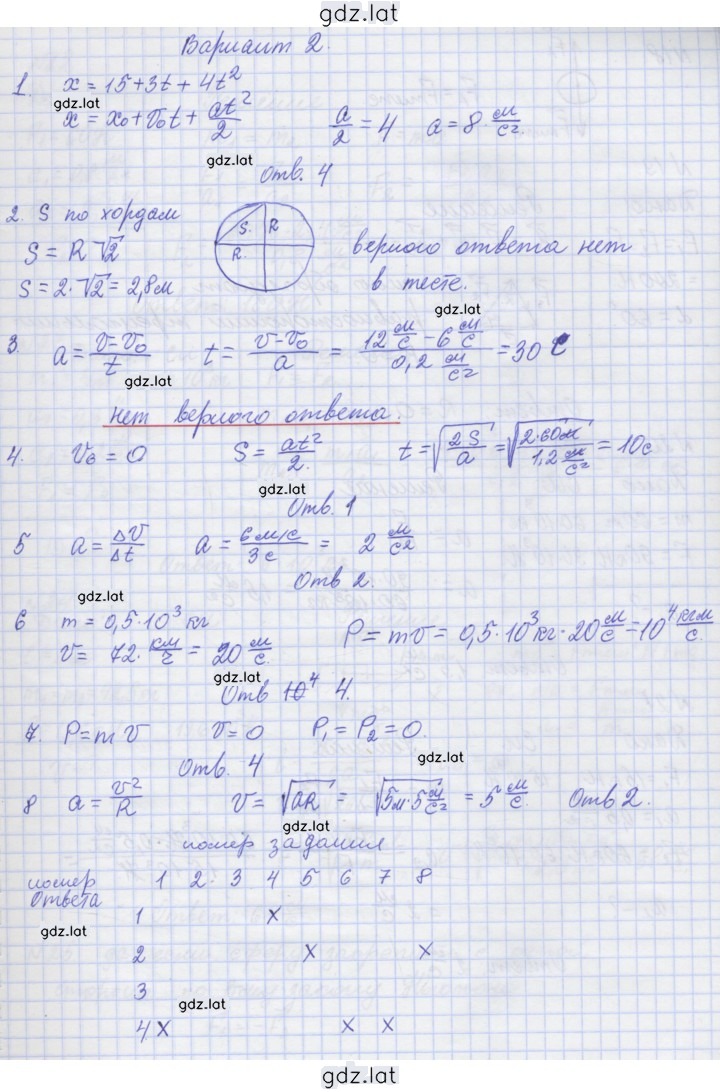 gdz.lat
Вариант 2.
1. x = 15 + 3t + 4t²
gdz.lat
x = x₀ + v₀t + at²/2   a/2 = 4   a = 8 · м/с²
gdz.lat
Отв. 4
2. S по хордам
S = R √2   S R R   верного ответа нет
S = 2 · √2 = 2,8м   в тесте.
gdz.lat
3. a = v = v₀/t   t = v - v₀/a = 12 м/с - 6 м/с / 0,2 м/с² = 30 с
gdz.lat
нет верного ответа.
4. V₀ = 0   S = at²/2.   t = √2S/a = √2·60м/1,2 м/с² = 10с
gdz.lat
Отв. 1
5 a = ΔV/Δt   a = 6 м/с / 3с = 2 м/с²
Отв 2.
gdz.lat
6 m = 0,5 · 10³ кг
v = 72 · км/ч = 20 м/с.   P = mv = 0,5 · 10³ кг · 20 м/с = 10⁴ кгм/с.
gdz.lat
Отв 10⁴ 4.
7. P = m V   V = 0   P₁ = P₂ = 0.
gdz.lat
Отв. 4
8 a = v²/R   V = √aR = √5м · 5 м/с² = 5 м/с.   Отв 2.
gdz.lat
номер задания
номер 1 2. 3 4 5 6 7 8
Ответа
1 x
gdz.lat
2 x x
3
gdz.lat
4 x x x
gdz.lat